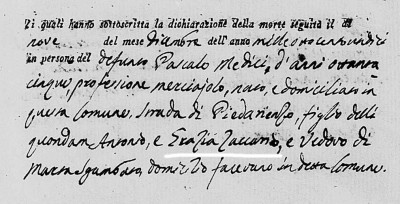 Li quali hanno sottoscritta la dichiarazione della morte seguita il dì
nove del mese dicembre dell'anno mille ottocento undici
in persona del defunto Pascale Medici, d'anni ottanta
cinque, professione merciajolo, nato, e domiciliato in
questa Comune, Strada di Piedarienzo, figlio delli
quondam Antonio, e Grazia Zaccaro, e Vedovo di
Marta Sgambato, domicilio facevano in detta Comune.